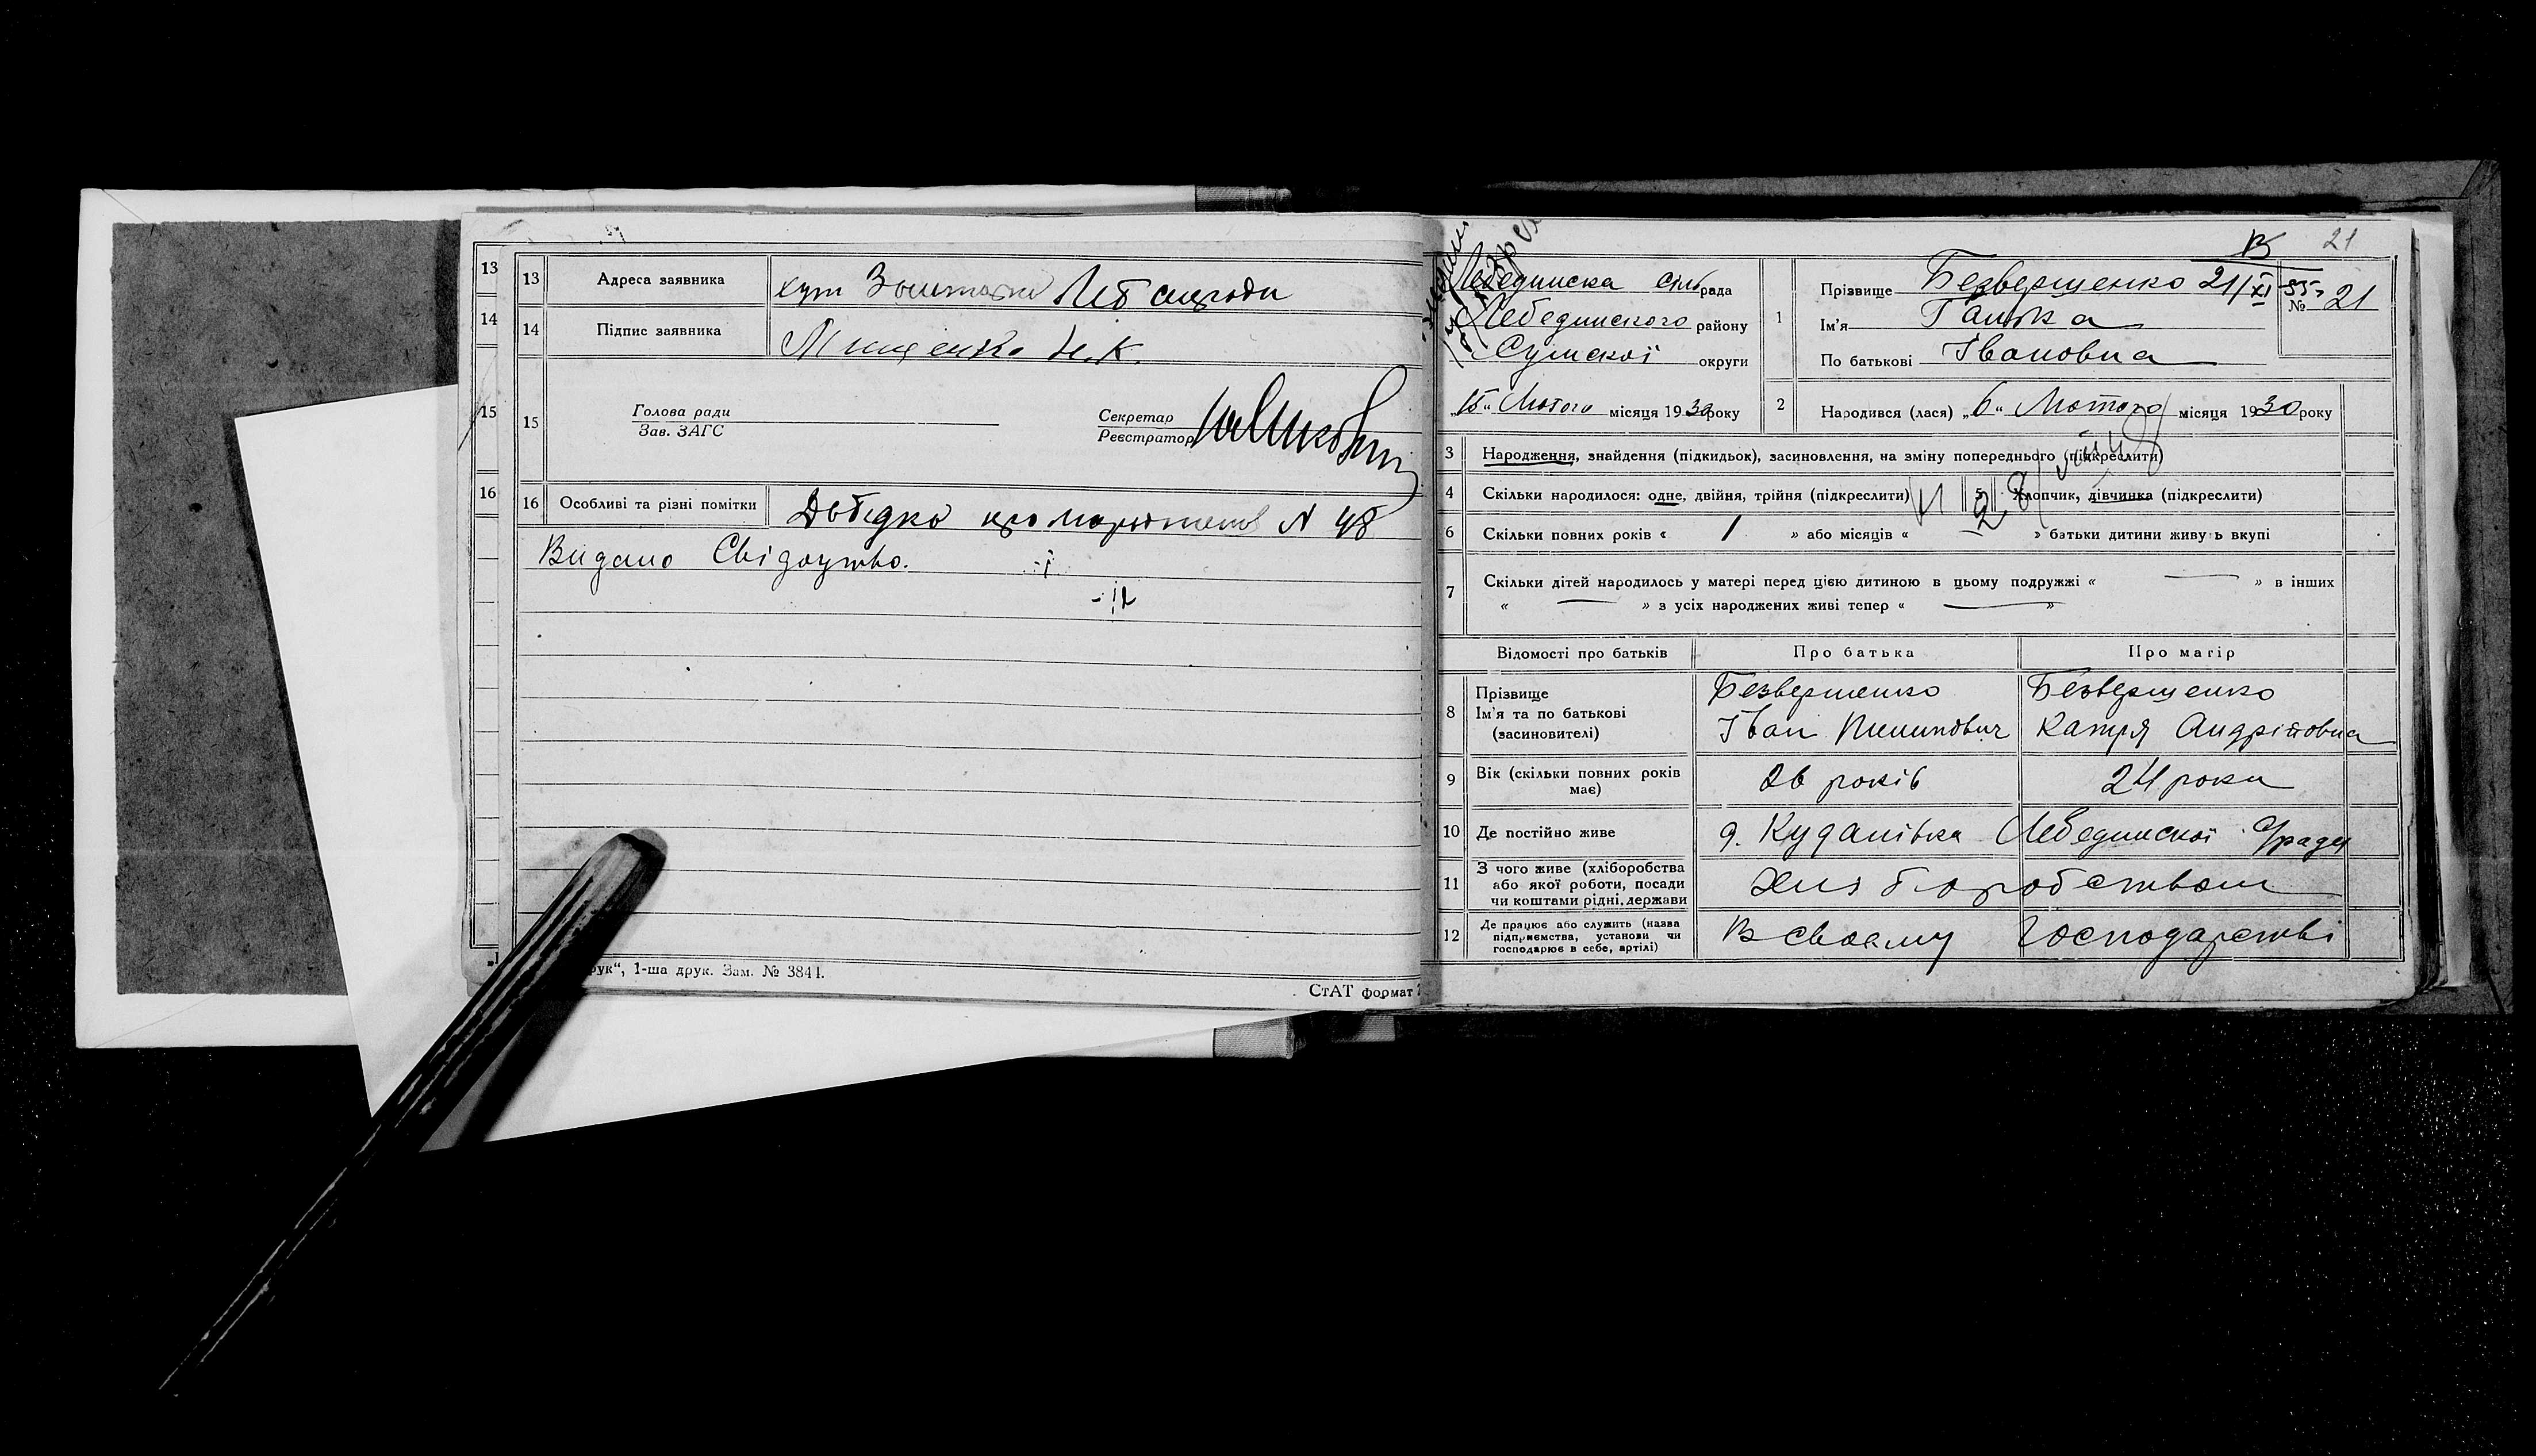 13 Адреса заявника хут Леб сільради
14 Підпис заявника Мищенко Н.К.
15 Голова ради Секретар
Зав. ЗАГС Реєстратор
16 Особливі та різні помітки Довідка про народження N 48
Видано Свідоцтво.
рук“, 1-ша друк. Зам. № 3841.
СтАТ формат
13
14
15
16
21
Лебединска сільрада
Лебединского району
Сумскої округи
„15“ Лютого місяця 1930 року
1 Прізвище Безверщенко 21/XI 55г
№ 21
Ім'я Ганька
По батькові Івановна
2 Народився (лася) „6“ Лютого місяця 1930 року
3 Народження, знайдення (підкидьок), засиновлення, на зміну попереднього (підкреслити)
4 Скільки народилося: одне, двійня, трійня (підкреслити) 5 Хлопчик, дівчинка (підкреслити)
6 Скільки повних років « 1 » або місяців « » батьки дитини живуть вкупі
7 Скільки дітей народилось у матері перед цією дитиною в цьому подружжі « — » в інших
« — » з усіх народжених живі тепер « — »
Відомості про батьків Про батька Про матір
8 Прізвище Безвершенко Безверщенко
Ім'я та по батькові Іван Пилипович Катря Андрійовна
(засиновителі)
9 Вік (скільки повних років має) 26 років 24 роки
10 Де постійно живе д. Куданівка Лебединскої С/ради
11 З чого живе (хліборобства або якої роботи, посади чи коштами рідні, держави Хліборобством
12 Де працює або служить (назва підприємства, установи чи господарює в себе, артілі) В своєму Господарстві